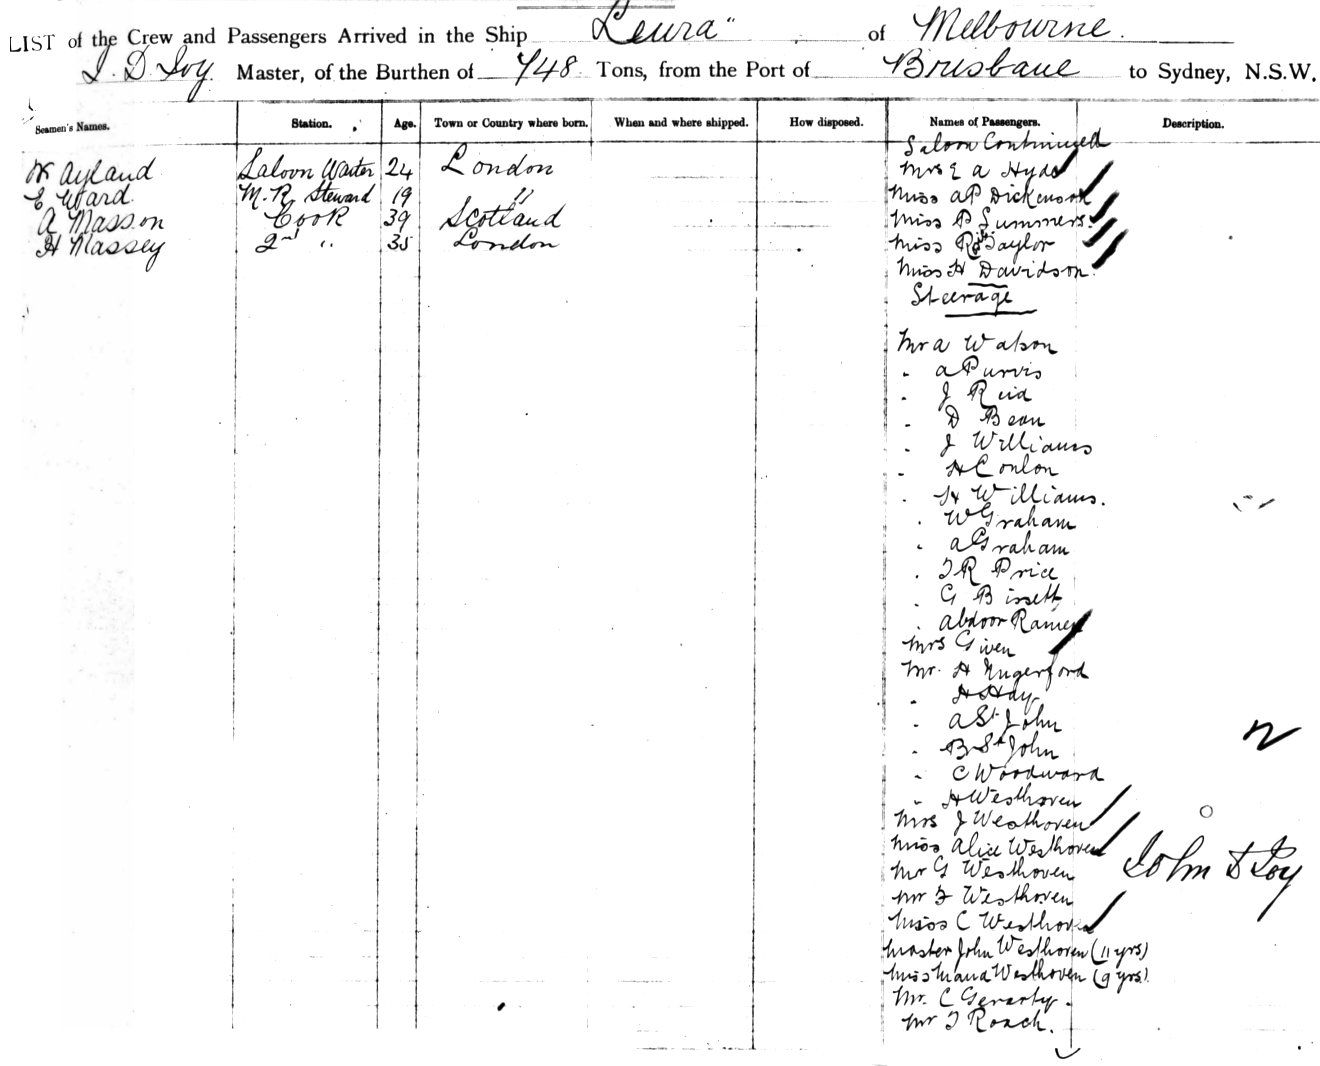 LIST of the Crew and Passengers Arrived in the Ship Leura" of Melbourne.
J. D. Joy. Master, of the Burthen of 748 Tons, from the Port of Brisbane to Sydney, N.S.W.
Seamen's Names. Station. Age. Town or Country where born. When and where shipped. How disposed. Names of Passengers. Description.
Saloon Continued
W Ayland Saloon Waiter 24 London Mrs E A Hyde
E Ward M.R. Steward 19 " Miss A P Dickenson
A Masson Cook 39 Scotland Miss P Summers.
H Massey 2nd " 35 London Miss Taylor
Miss H Davidson.
Steerage
Mr A Watson
" A Purvis
" J Reid
" D Bean
" J Williams
" H Conlon
" H Williams.
" W Graham
" A Graham
" T R Price
" G Bissett
" Abdoor
Mrs Given
Mr. H
" H Hay
" A St John
" B St John
" C Woodward
" H Westhoven
Mrs J Westhoven
Miss Alice Westhoven
Mr G Westhoven
Mr F Westhoven
Miss C Westhoven
Master John Westhoven (11 yrs)
Miss Maria Westhoven (9 yrs).
Mr. C Gerarty.
Mr T Roach.
John D Joy